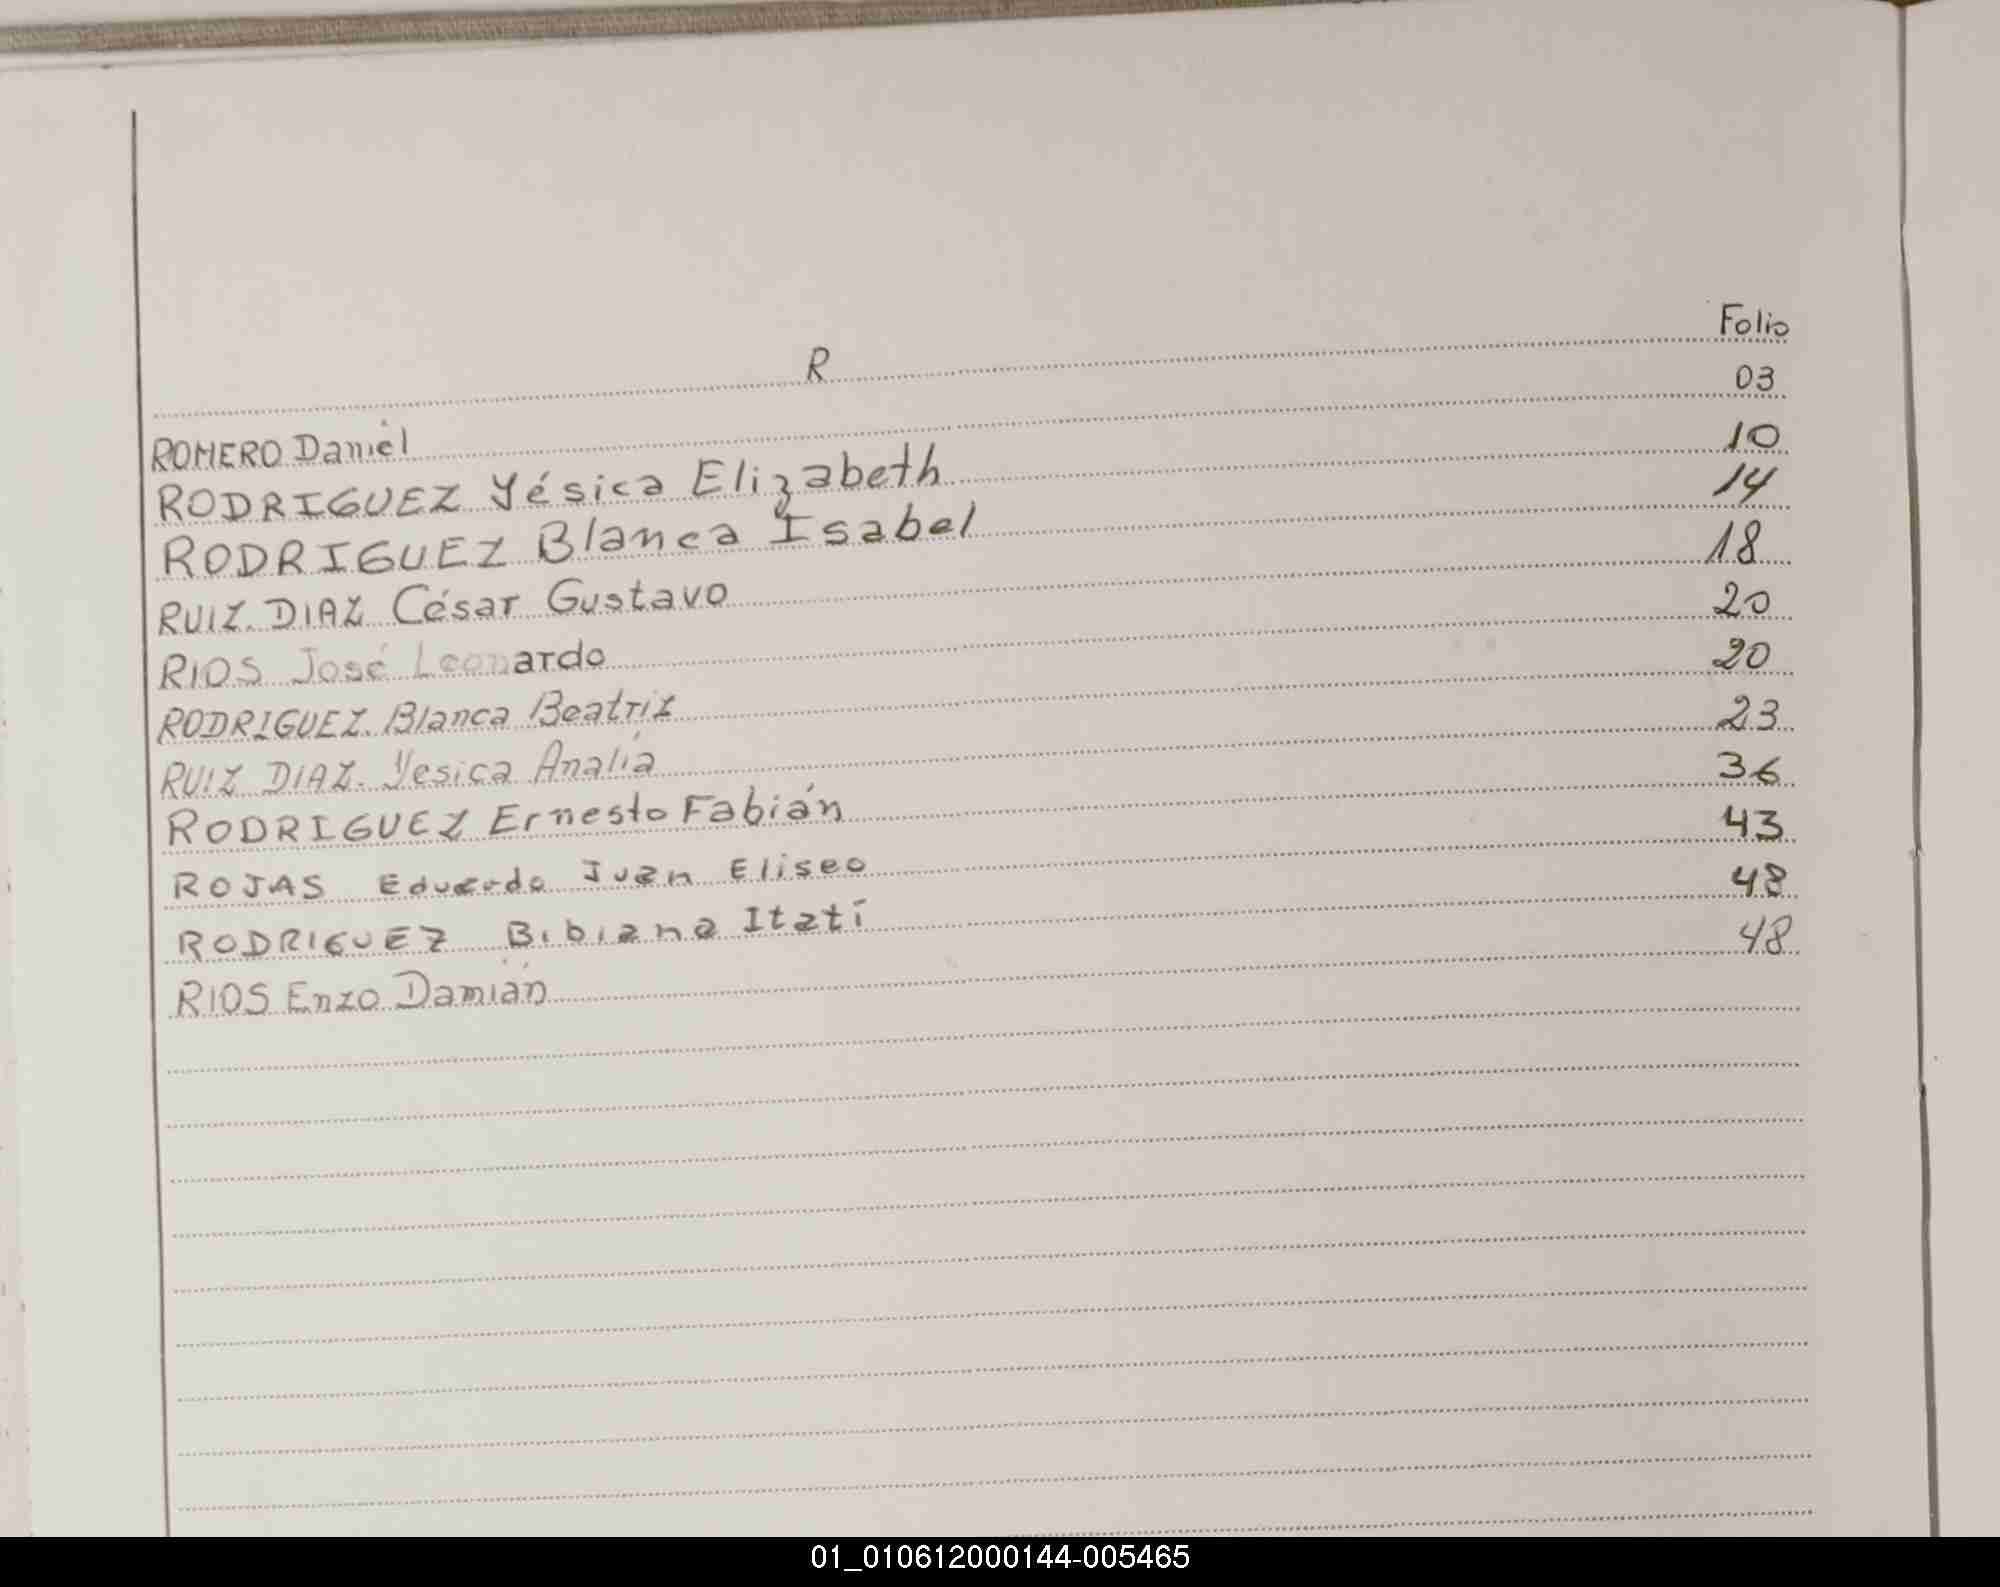 R Folio
ROMERO Daniel 03
RODRIGUEZ Yésica Elizabeth 10
RODRIGUEZ Blanca Isabel 14
RUIZ DIAZ César Gustavo 18
RIOS José Leonardo 20
RODRIGUEZ Blanca Beatriz 20
RUIZ DIAZ Yesica Analía 23
RODRIGUEZ Ernesto Fabián 36
ROJAS Eduardo Juan Eliseo 43
RODRIGUEZ Bibiana Itatí 48
RIOS Enzo Damián 48
01_010612000144-005465